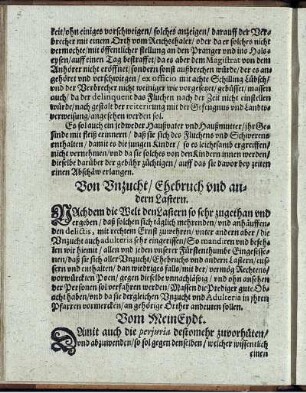 keit/ ohn einiges vorschweigen/ solches anzeigen/ darauff der Ver-
brecher mit einem Orth vom Reichsthaler/ oder da er solches nicht
vermochte/ mit öffentlicher stellung an den Pranger und ins Hals-
eysen/ auff einen Tag bestraffet/ da es aber dem Magistrat von dem
Anhörer nicht eröffnet/ sondern sonst außbrechen würde/ der es an-
gehöret und verschwiegen/ ex officio mit acht Schilling Lübsch/
und der Verbrecher nicht weiniger wie vorgesetzet/ gebüsset/ massen
auch/ da der delinquent das Fluchen nach der Zeit nicht einstellen
würde/ nach gestalt der reiterirung mit der Gefengnus und Landes-
verweisung/ angesehen werden sol.
Es sol auch ein jedweder Haußvater und Haußmutter/ ihr Ge-
sinde mit fleiß erinnern/ daß sie sich des Fluchens und Schwerens
enthalten/ damit es die jungen Kinder/ so es leichtsamb ergreiffen/
nicht vernehmen/ und da sie solches von den Kindern innen werden/
dieselbe darüber der gebühr züchtigen/ auff das sie davor bey zeiten
einen Abschäw erlangen.
Von Vnzucht/ Ehebruch vnd an-
dern Lastern.
NAchdem die Welt den Lastern so sehr zugethan vnd
ergeben/ daß solchen sich täglich mehrenden/ vnd anhäuffen-
den delictis, mit rechtem Ernst zuwehren/ unter andern aber/ die
Vnzucht auch adulteria sehr eingeriſſen/ So mandiren und befeh-
len wir hiemit/ allen und jeden unserer Fürstenthumbe Eingesesse-
nen/ daß sie sich aller Vnzucht/ Ehebruchs vnd andern Lastern/ eus-
sern und enthalten/ dan wiedriges falls/ mit der/ vermög Rechtens/
verwürckten Poen/ gegen dieselbe vnnachlässig/ vnd ohn ansehen
der Personen sol verfahren werden/ Massen die Prediger gute Ob-
acht haben/ vnd da sie dergleichen Vnzucht vnd Adulteria in ihren
Pfarren vormercken/ an gehörige Örther andeuten sollen.
Vom MeinEydt.
DAmit auch die perjuria desto mehr zuvorhüten/
vnd abzuwenden/ so sol gegen denselben/ welcher wissentlich
einen